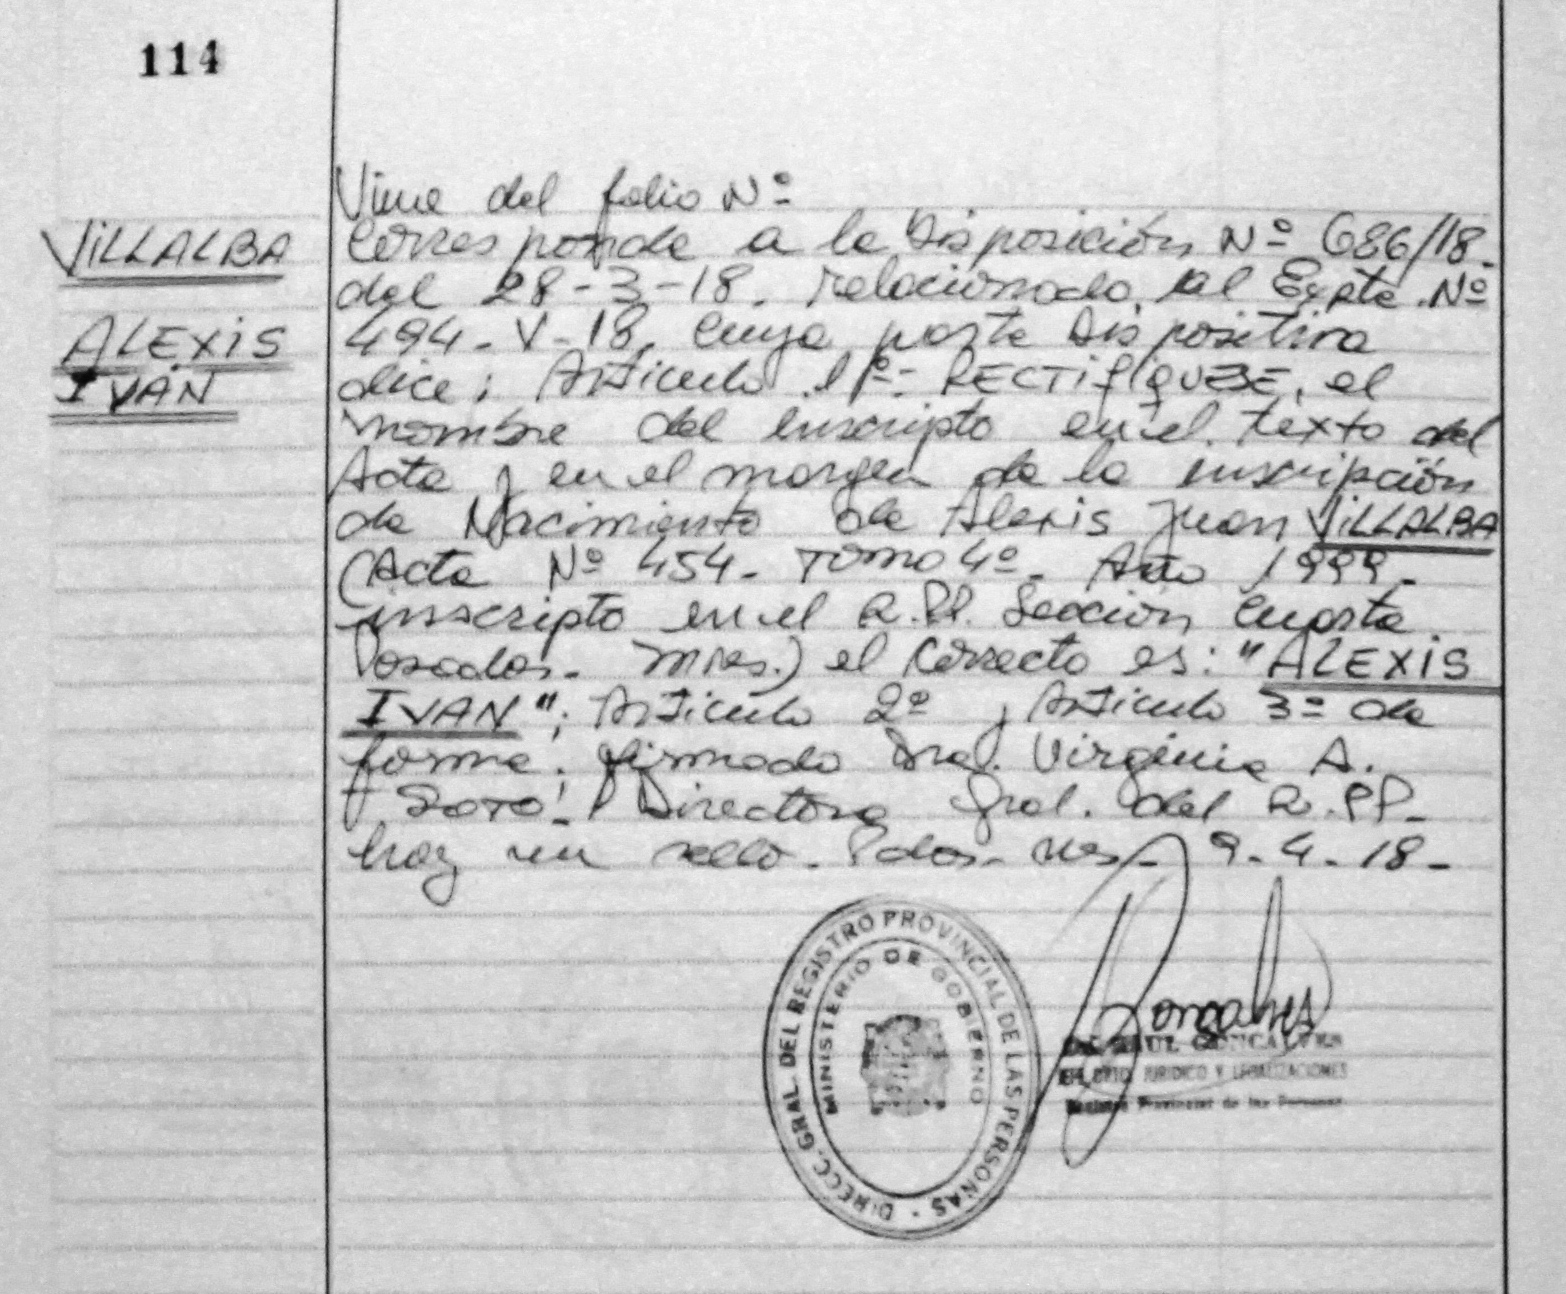 114
VILLALBA
ALEXIS
IVÁN
Viene del folio Nº
Corresponde a la Disposición Nº 686/18.
del 28-3-18. relacionado al Expte. Nº
494-V-18. cuya parte Dispositiva
dice; Artículo 1º- RECTIFIQUESE, el
nombre del inscripto en el texto del
Acta y en el margen de la inscripción
de Nacimiento de Alexis Juan VILLALBA
(Acta Nº 454- Tomo 4º- Año 1999-
inscripto en el R.PP. Sección Cuarta
Posadas- Mnes.) el correcto es: "ALEXIS
IVAN"; Artículo 2º y Artículo 3º de
forma. firmado Dra. Virginia A.
SOTO! Directora Gral. del R.PP-
hay un sello. Pdas- Mes- 9-4-18-
DIRECC. GRAL. DEL REGISTRO PROVINCIAL DE LAS PERSONAS -
MINISTERIO DE GOBIERNO
RAUL GONCALVES
JURIDICO Y LEGALIZACIONES
Registro Provincial de las Personas